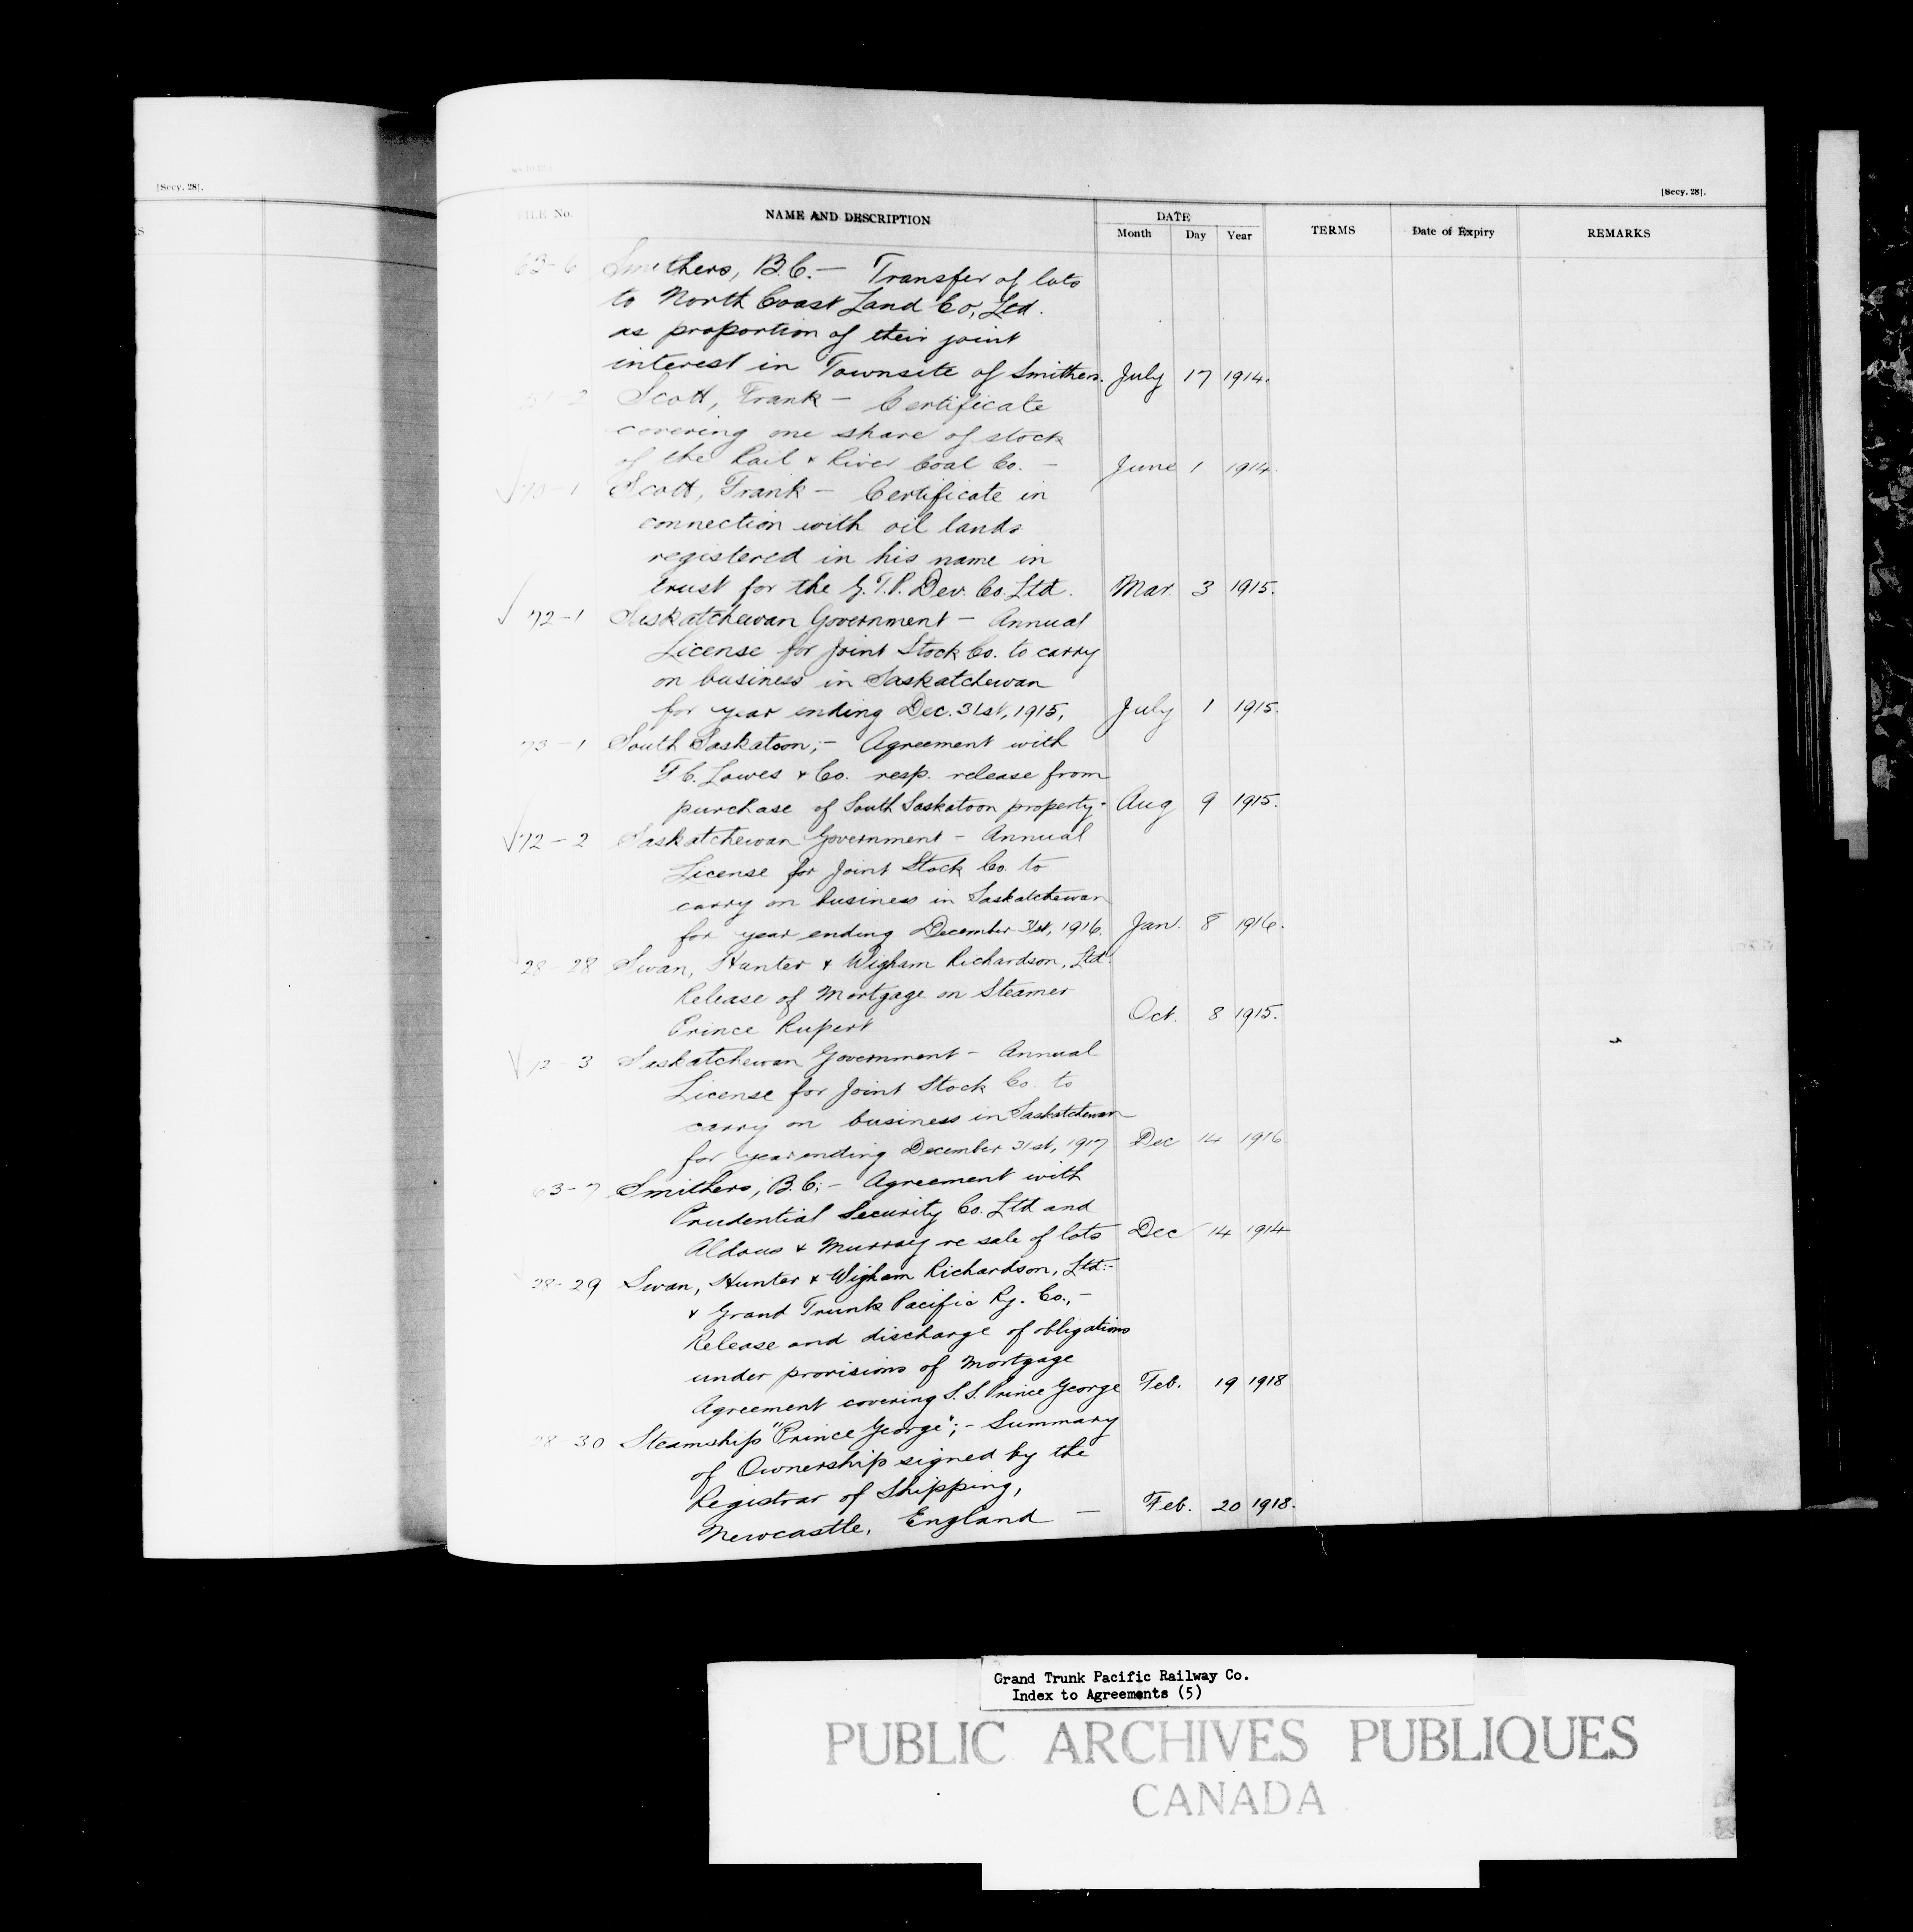 [Secy. 28].
[Secy. 28].
FILE No.
NAME AND DESCRIPTION
DATE
Month Day Year
TERMS
Date of Expiry
REMARKS
63-6 Smithers, B.C. — Transfer of lots
to North Coast Land Co, Ltd.
as proportion of their joint
interest in Townsite of Smithers. July 17 1914.
Scott, Frank — Certificate
covering one share of stock
of the Rail & River Coal Co. — June 1 1914.
√ 70-1 Scott, Frank — Certificate in
connection with oil lands
registered in his name in
trust for the G.T.P. Dev. Co. Ltd. Mar. 3 1915.
√ 72-1 Saskatchewan Government — Annual
License for Joint Stock Co. to carry
on business in Saskatchewan
for year ending Dec. 31st, 1915, July 1 1915.
73-1 South Saskatoon; — Agreement with
F.C. Lowes & Co. resp. release from
purchase of South Saskatoon property - Aug 9 1915.
√ 72-2 Saskatchewan Government — Annual
License for Joint Stock Co. to
carry on business in Saskatchewan
for year ending December 31st, 1916. Jan. 8 1916.
28-28 Swan, Hunter & Wigham Richardson, Ltd.
Release of Mortgage on Steamer
Prince Rupert Oct. 8 1915.
√ 72-3 Saskatchewan Government — Annual
License for Joint Stock Co. to
carry on business in Saskatchewan
for year ending December 31st, 1917 Dec 14 1916
63-7 Smithers, B.C; — Agreement with
Prudential Security Co. Ltd and
Aldous & Murray re sale of lots Dec 14 1914
28-29 Swan, Hunter & Wigham Richardson, Ltd:-
& Grand Trunk Pacific Ry. Co., —
Release and discharge of obligations
under provisions of Mortgage
Agreement covering S.S. Prince George Feb. 19 1918
28-30 Steamship "Prince George"; — Summary
of Ownership signed by the
Registrar of Shipping,
Newcastle, England — Feb. 20 1918.
Grand Trunk Pacific Railway Co.
Index to Agreements (5)
PUBLIC ARCHIVES PUBLIQUES
CANADA